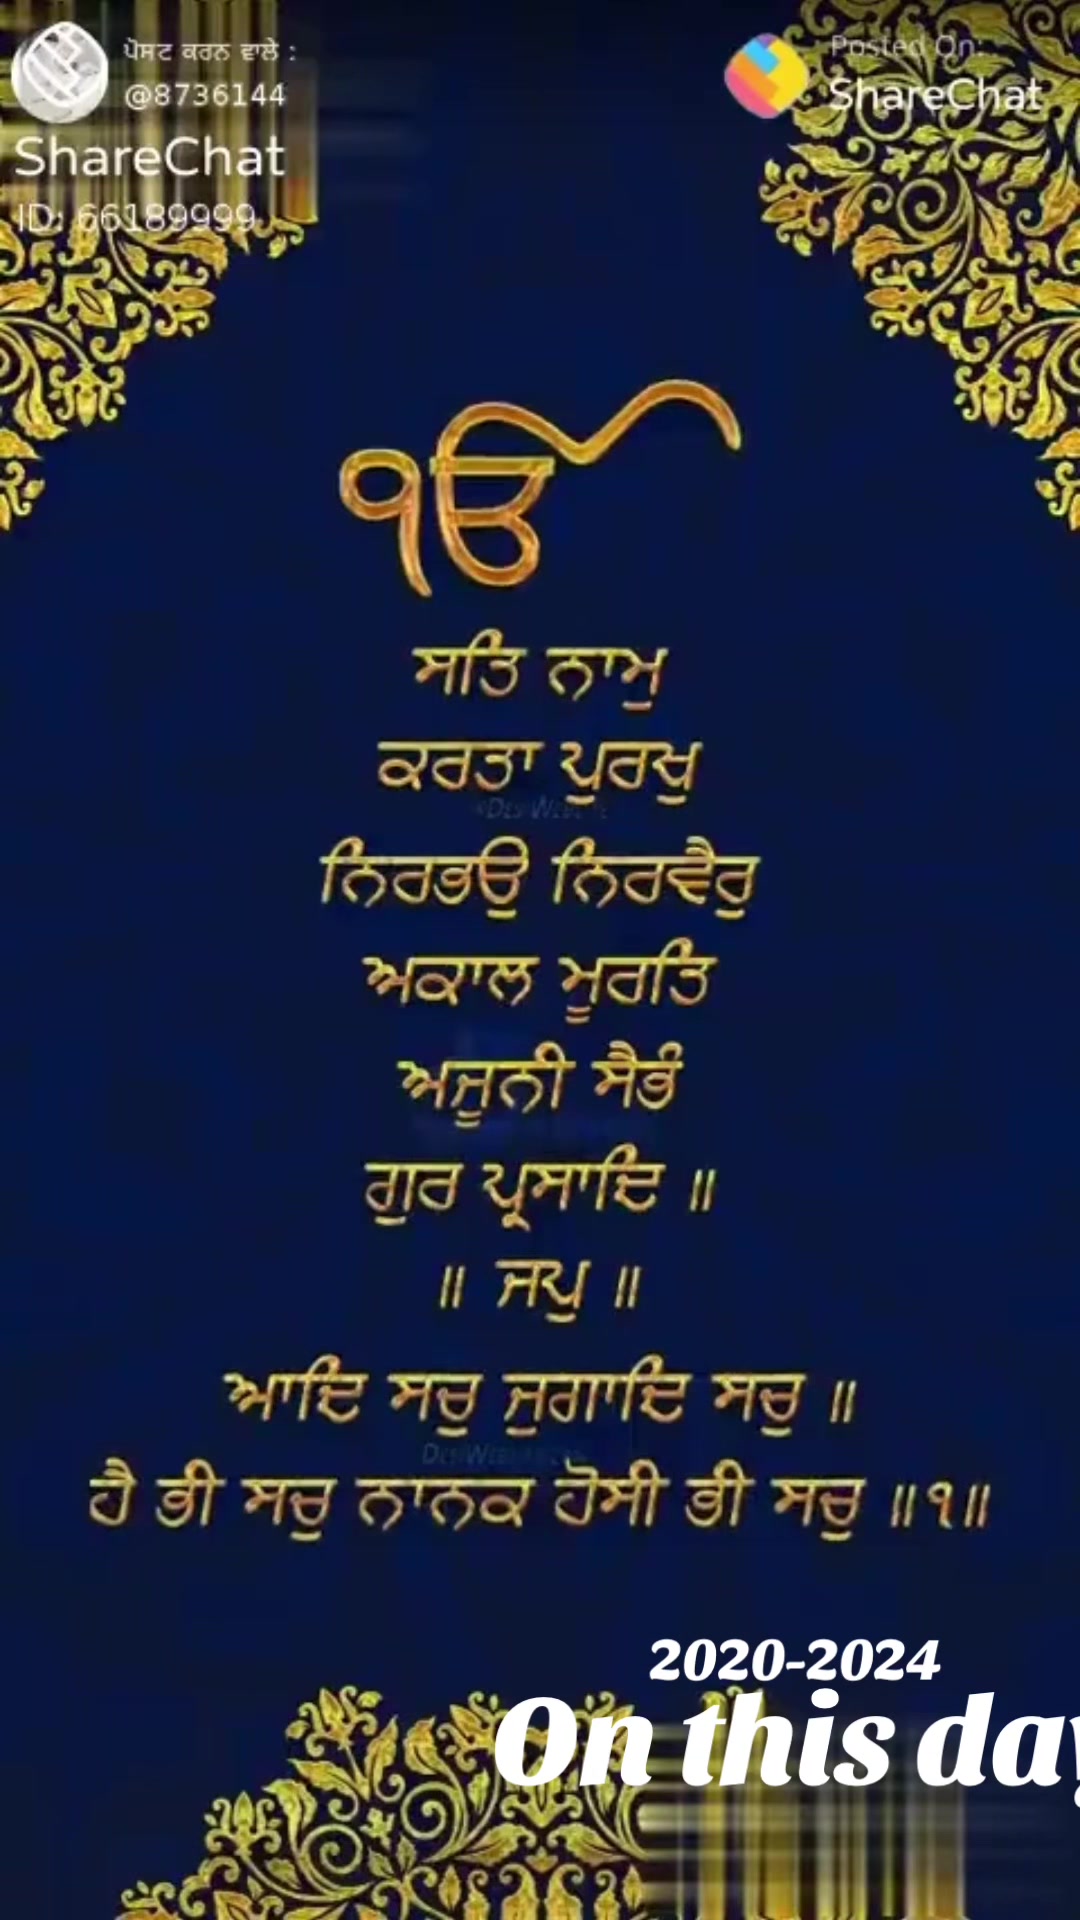 ਪੋਸਟ ਕਰਨ ਵਾਲੇ :
@8736144
ShareChat
ID: 66189999
Posted On:
ShareChat
ੴ
ਸਤਿ ਨਾਮੁ
ਕਰਤਾ ਪੁਰਖੁ
ਨਿਰਭਉ ਨਿਰਵੈਰੁ
ਅਕਾਲ ਮੂਰਤਿ
ਅਜੂਨੀ ਸੈਭੰ
ਗੁਰ ਪ੍ਰਸਾਦਿ ॥
॥ ਜਪੁ ॥
ਆਦਿ ਸਚੁ ਜੁਗਾਦਿ ਸਚੁ ॥
ਹੈ ਭੀ ਸਚੁ ਨਾਨਕ ਹੋਸੀ ਭੀ ਸਚੁ ॥੧॥
2020-2024
On this day